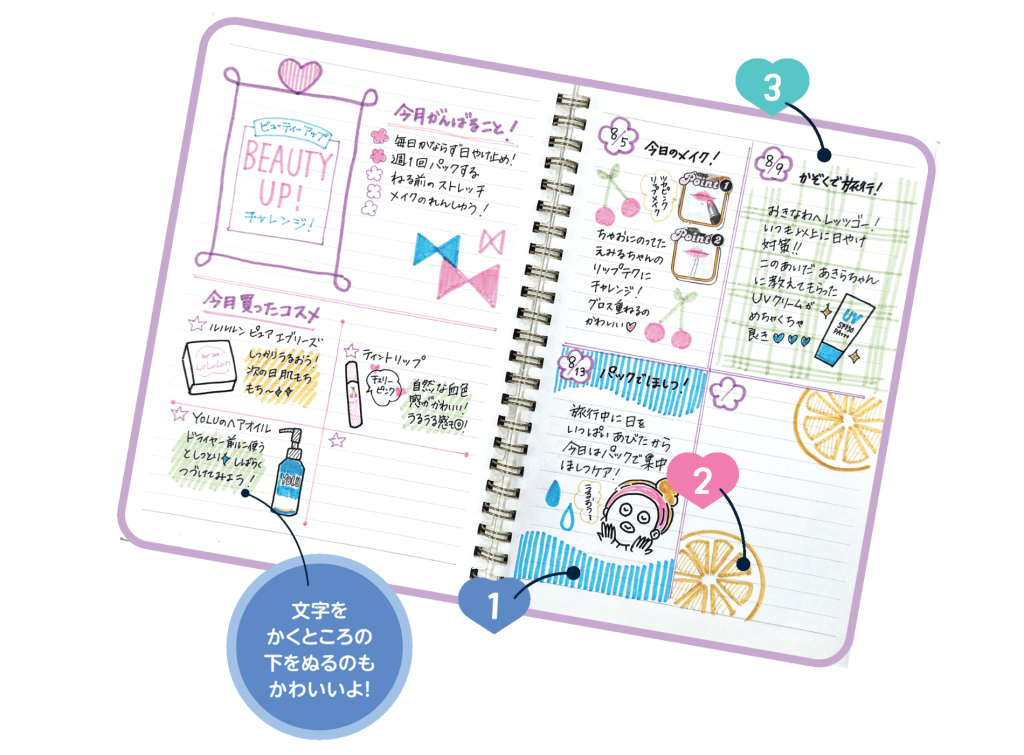 ビューティーアップ
BEAUTY
UP!
チャレンジ!
今月がんばること!
毎日かならず日やけ止め!
週1回パックする
ねる前のストレッチ
メイクのれんしゅう!
今月買ったコスメ
ルルルン ピュア エブリーズ
LuLuLun
しっかりうるおう!
次の日肌もち
もち〜
ティントリップ
チェリー
ピンク
自然な血色
感がかわいい!
うるうる感も◎!
YOLUのヘアオイル
ドライヤー前に使う
としっとり しばらく
つづけてみよう!
YOLU
文字を
かくところの
下をぬるのも
かわいいよ!
8/5
今日のメイク!
ツヤピンク
リップメイク
Point 1
Point 2
ちゃおにのってた
えみるちゃんの
リップテクに
チャレンジ!
グロス重ねるの
かわいい♡
3
8/9
かぞくで旅行!
おきなわへレッツゴー!
いつも以上に日やけ
対策!!
このあいだ あきらちゃん
に教えてもらった
UVクリームが
めちゃくちゃ
良き
UV
SPF50
PA+++
8/13
パックでほしつ!
旅行中に日を
いっぱいあびたから
今日はパックで集中
ほしつケア!
うるおう〜
/
2
1